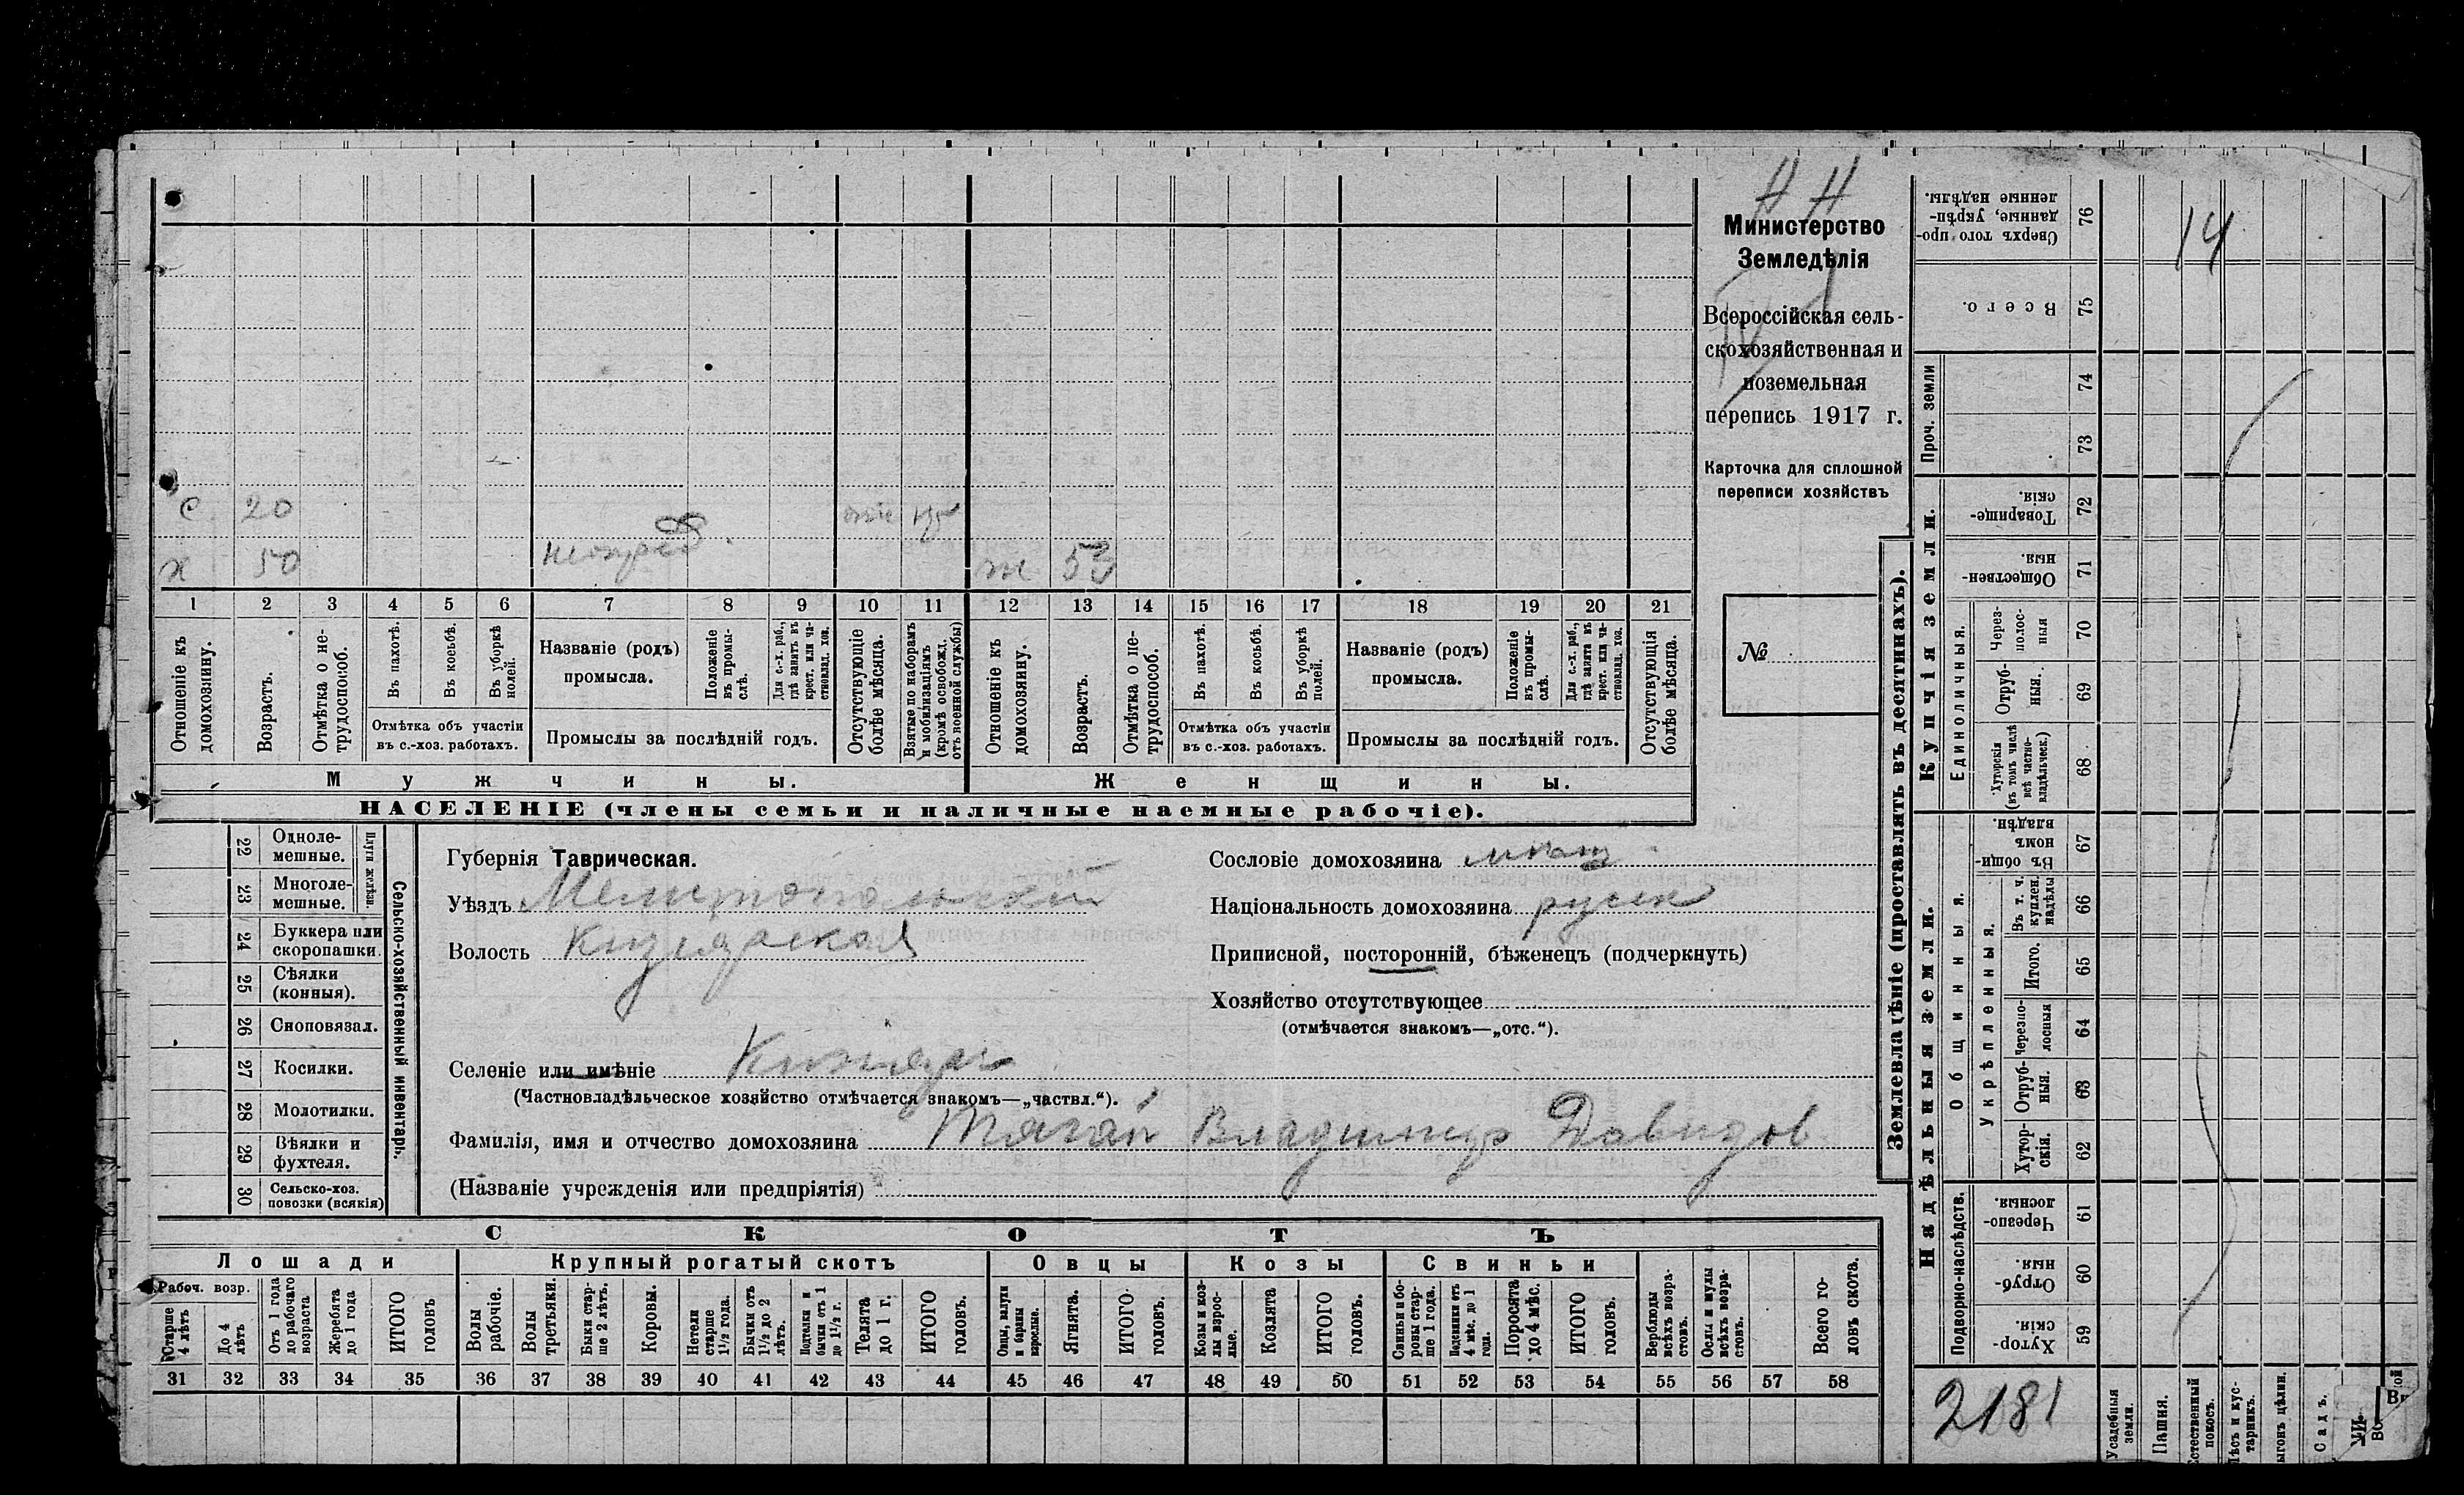 Н Н
14
Министерство
Земледѣлія
Всероссійская сель-
скохозяйственная и
поземельная
перепись 1917 г.
Карточка для сплошной
переписи хозяйствъ
№
с 20
х 50 ж 53
1 2 3 4 5 6 7 8 9 10 11 12 13 14 15 16 17 18 19 20 21
Отношеніе къ домохозяину.
Возрастъ.
Отмѣтка о не-трудоспособ.
Въ пахотѣ.
Въ косьбѣ.
Въ уборкѣ полей.
Отмѣтка объ участіи
въ с.-хоз. работахъ.
Названіе (родъ)
промысла.
Положеніе въ промы-слѣ.
Для с.-х. раб., гдѣ занятъ въ крест. или ча-стновлад. хоз.
Промыслы за послѣдній годъ.
Отсутствующіе болѣе мѣсяца.
Взятые по наборамъ и мобилизаціямъ (кромѣ освобожд. отъ военной службы)
Отношеніе къ домохозяину.
Возрастъ.
Отмѣтка о не-трудоспособ.
Въ пахотѣ.
Въ косьбѣ.
Въ уборкѣ полей.
Отмѣтка объ участіи
въ с.-хоз. работахъ.
Названіе (родъ)
промысла.
Положеніе въ промы-слѣ.
Для с.-х. раб., гдѣ занята въ крест. или ча-стновлад. хоз.
Промыслы за послѣдній годъ.
Отсутствующія болѣе мѣсяца.
Мужчины. Женщины.
НАСЕЛЕНІЕ (члены семьи и наличные наемные рабочіе).
22 Одноле-мешные.
23 Многоле-мешные.
Плуги желѣзн.
24 Буккера или скоропашки.
25 Сѣялки (конныя).
26 Сноповязал.
27 Косилки.
28 Молотилки.
29 Вѣялки и фухтеля.
30 Сельско-хоз. повозки (всякія)
Сельско-хозяйственный инвентарь.
Губернія Таврическая.
Уѣздъ Мелитопольский
Волость Кизиярская
Селеніе или имѣніе Кизияр
(Частновладѣльческое хозяйство отмѣчается знакомъ—„частвл.“).
Фамилія, имя и отчество домохозяина Тягай Владимир Давидов
(Названіе учрежденія или предпріятія)
Сословіе домохозяина мещ
Національность домохозяина русск
Приписной, посторонній, бѣженецъ (подчеркнуть)
Хозяйство отсутствующее
(отмѣчается знакомъ—„отс.“).
СКОТЪ
Лошади Крупный рогатый скотъ Овцы Козы Свиньи
Рабоч. возр.
Старше 4 лѣтъ
До 4 лѣтъ
Отъ 1 года до рабочаго возраста
Жеребята до 1 года
ИТОГО головъ
Волы рабочіе.
Волы третьяки.
Быки стар-ше 2 лѣтъ.
Коровы.
Нетели старше 1½ года.
Бычки отъ 1½ до 2 лѣтъ.
Подтелки и бычки отъ 1 до 1½ г.
Телята до 1 г.
ИТОГО головъ.
Овцы, валухи и бараны взрослые.
Ягнята.
ИТОГО головъ.
Козы и коз-лы взрос-лые.
Козлята
ИТОГО головъ.
Свиньи и бо-ровы стар-ше 1 года.
Подсвинки отъ 4 мѣс. до 1 года.
Поросята до 4 мѣс.
ИТОГО головъ.
Верблюды всѣхъ возра-стовъ.
Ослы и мулы всѣхъ возра-стовъ.
Всего го-ловъ скота.
31 32 33 34 35 36 37 38 39 40 41 42 43 44 45 46 47 48 49 50 51 52 53 54 55 56 57 58
Землевладѣніе (проставлять въ десятинахъ).
Сверхъ того про-данные, укрѣп-ленные надѣлы. 76
Всего. 75
Проч. земли
74
73
Купчія земли.
Товарище-скія. 72
Обществен-ныя. 71
Единоличныя.
Через-полос-ныя 70
Отруб-ныя. 69
Хуторскія (въ томъ числѣ всѣ частно-владѣльческ.) 68
Надѣльныя земли.
Общинныя.
Въ общи-номъ владѣн. 67
Въ т. ч. куплен. надѣлы 66
Укрѣпленныя.
Итого. 65
Черезпо-лосныя 64
Отруб-ныя. 63
Хутор-скія. 62
Подворно-наслѣдств.
Черезпо-лосныя. 61
Отруб-ныя. 60
Хутор-скія. 59
2181
Усадебныя земли.
Пашня.
Естественный покосъ.
Лѣсъ и кус-тарникъ.
Выгонъ цѣлин.
Садъ.